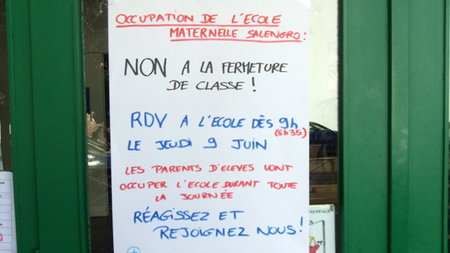 OCCUPATION DE L'ÉCOLE
MATERNELLE SALENGRO :
NON A LA FERMETURE
DE CLASSE !
RDV A L'ECOLE DÈS 9h
(8h35)
LE JEUDI 9 JUIN
LES PARENTS D'ELEVES VONT
OCCUPER L'ECOLE DURANT TOUTE
LA JOURNÉE
RÉAGISSEZ ET
REJOIGNEZ NOUS !